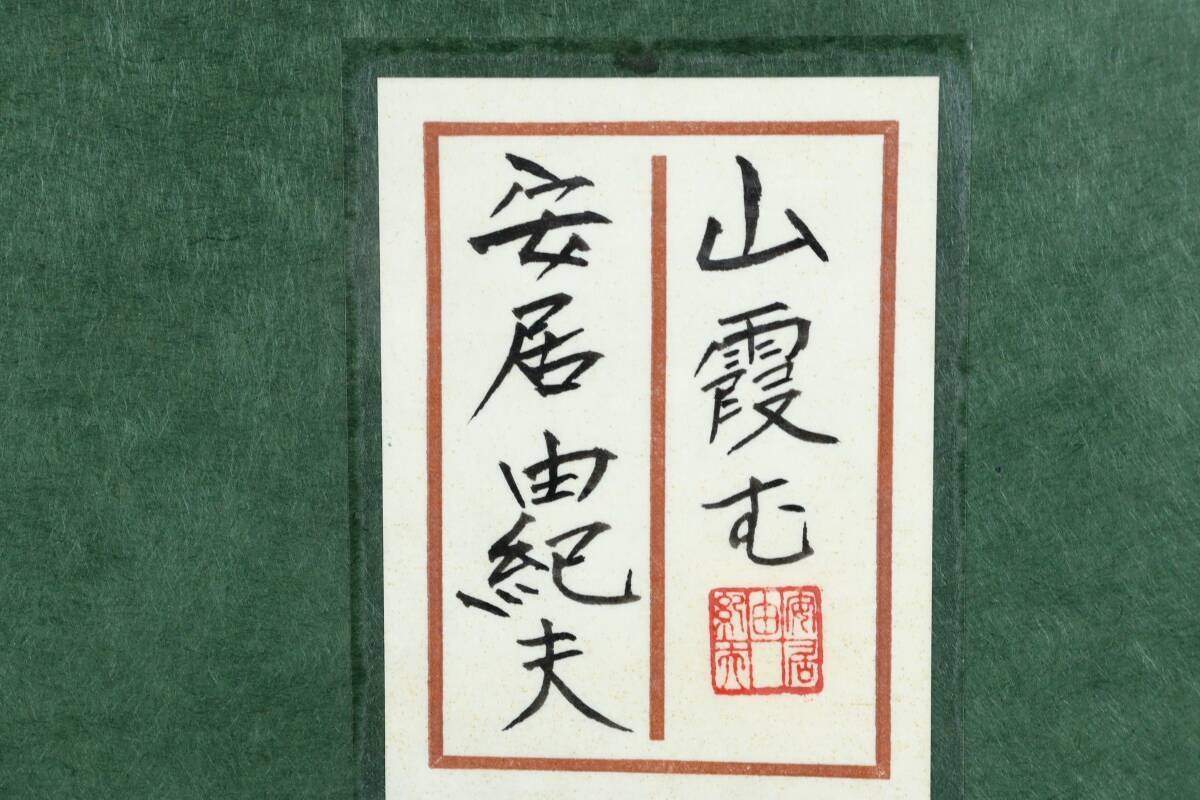 山霞む
安居由紀夫
安居
由
紀夫